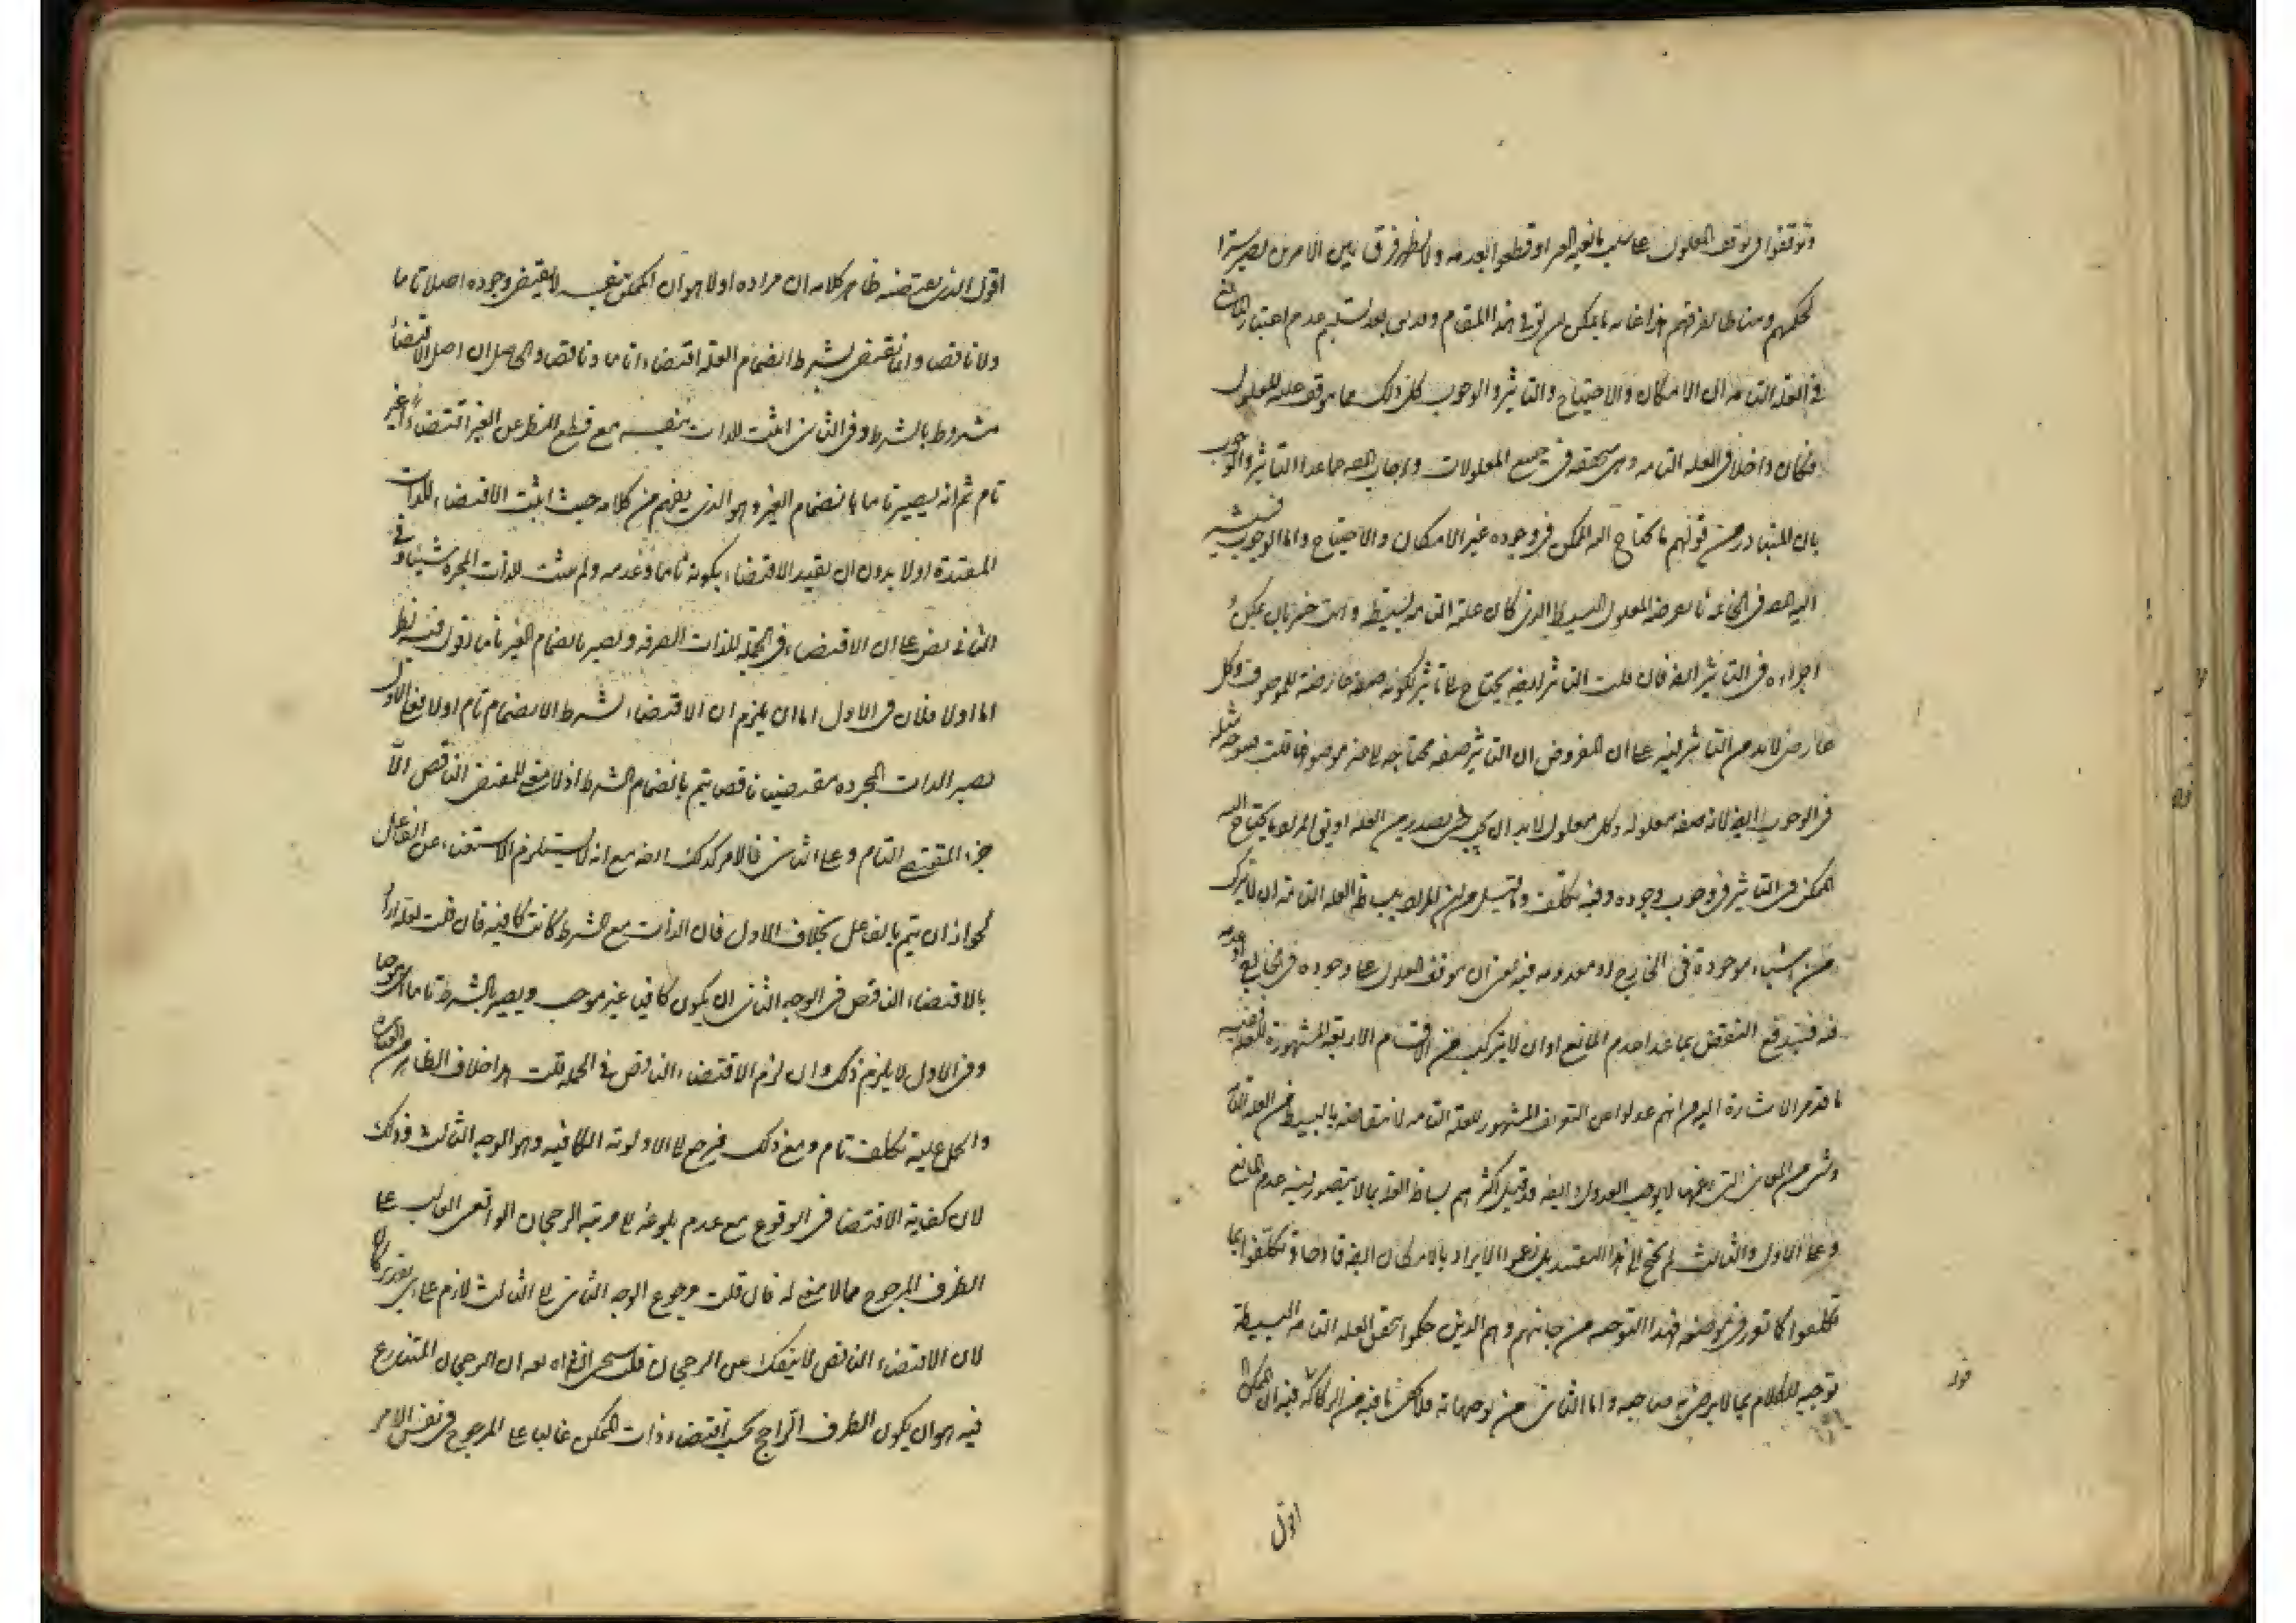 وتوقفوا في توقف المعلول على سلب مانعية الغير او قطعوا بعدمه ولا يظهر فرق بين الامرين يصير سترا
لحكمهم ومناطا لفرقهم هذا غاية ما يمكن ان يق في هذا المقام وبعد تسليم عدم اعتبار
في العلة التامة ان الامكان والاحتياج والتاثير والوجوب كل ذلك مما يتوقف عليه المعلول
فكان داخلا في العلة التامة وهي متحققة في جميع المعلولات واجاب عما عدا التاثير والوجوب
بان المتبادر من قولهم ما يحتاج اليه الممكن في وجوده غير الامكان والاحتياج واما الوجوب
المعلول البسيط الذي كان علته التامة بسيطة وانت خبير بان يمكن
اجراءه في التاثير ايضا فان قلت التاثير ايضا يحتاج الى تاثير لكونه صفة عارضة للموصوف وكل
عارض لابد من التاثير فيه على ان المفروض ان التاثير صفة محتاجة الى موصوفها قلت يتوجه مثله
في الوجوب ايضا لانه صفة معلولة وكل معلول لابد ان يجب حتى يصدر من العلة او يق المراد ما يحتاج اليه
الممكن في التاثير في وجوب وجوده وفيه تكلف المراد ببساطة العلة التامة ان لا يتركب
من اشياء موجودة في الخارج او معدومة فيه يعني ان يتوقف المعلول على وجوده في الخارج او عدمه
فيه فيندفع النقض بما عدا عدم المانع او ان لا يتركب من الاقسام الاربعة المشهورة للعلة
ما قدم الاشارة اليه من انهم عدلوا عن التعريف المشهور للعلة التامة لانتقاضه بالبسيط من العلة
لا يوجب العدول وايضا قد قيل اكثرهم بساطة العلة بما لا يتصور فيه عدم المانع
وعلى الاول والثالث لم يحتج الى هذا التقييد بل زعموا الايراد بالامكان ايضا قادحا وتكلفوا بما
تكلفوا كما تقرر في موضعه فهذا التوجيه من جانبهم وهم الذين حكموا بتحقق العلة التامة البسيطة
توجيه للكلام بما لا يرضى به صاحبه واما الثاني من توجيهاته فلا يخفى ما فيه من الركاكة فيه ان الممكن
قوله
اقول
اقول الذي يقتضيه ظاهر كلامه ان مراده اولا هو ان الممكن بنفسه لا يقتضي وجوده اصلا تاما
ولا ناقصا وانما يقتضي بشرط انضمام العلة اقتضاء اما تاما وناقصا والحاصل ان اصل الاقتضاء
مشروط بالشرط وفي الثاني اثبت للذات بنفسه مع قطع النظر عن الغير اقتضاء غير
تام ثم انه يصير تاما بانضمام الغير وهو الذي يفهم من كلامه حيث اثبت الاقتضاء للذات
المقيدة اولا بدون ان يقيد الاقتضاء بكونه تاما وعدمه ولم يثبت للذات المجردة شيئا وفي
الثاني نص على ان الاقتضاء في الجملة للذات الصرفة ويصير بانضمام الغير تاما اقول فيه نظر
اما اولا فلان في الاول اما ان يلزم ان الاقتضاء بشرط الانضمام تام او لا فعلى الاول
يصير الذات المجردة مقتضيا ناقصا يتم بانضمام الشرط اذ لا معنى للمقتضي الناقص الا
جزء المقتضي التام وعلى الثاني فالامر كذلك ايضا مع انه لا يستلزم الاستغناء عن الفاعل
لجواز ان يتم بالفاعل بخلاف الاول فان الذات مع الشرط كانت كافية فان قلت لعله اراد
بالاقتضاء الناقص في الوجه الثاني ان يكون كافيا غير موجب ويصير بالشرط تاما اي موجبا
وفي الاول لا يلزم ذلك وان لزم الاقتضاء الناقص في الجملة قلت هذا خلاف الظاهر من العبارة
والحمل عليه تكلف تام ومع ذلك فيرجع الى الاولوية الكافية وهو الوجه الثالث وذلك
لان كفاية الاقتضاء في الوقوع مع عدم بلوغه الى مرتبة الرجحان الواقعي الغالب على
الطرف المرجوح مما لا معنى له فان قلت رجوع الوجه الثاني الى الثالث لازم على اي تقدير كان
لان الاقتضاء الناقص لا ينفك عن الرجحان قلت ان الرجحان المتنازع
فيه هو ان يكون الطرف الراجح بحسب اقتضاء ذات الممكن غالبا على المرجوح في نفس الامر